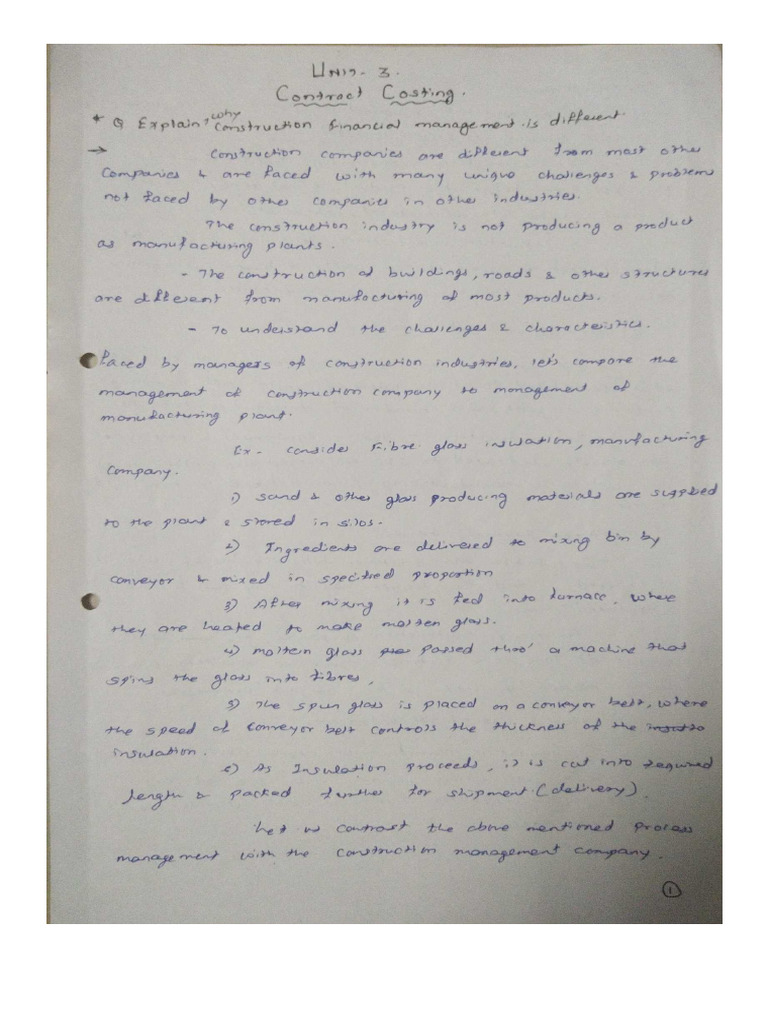 Unit - 3.
Contract Costing.
* Q Explain? why construction financial management is different.
→ Construction companies are different from most other
companies & are faced with many unique challenges & problems
not faced by other companies in other industries.
The construction industry is not producing a product
as manufacturing plants.
- The construction of buildings, roads & other structures
are different from manufacturing of most products.
- To understand the challenges & characteristics.
faced by managers of construction industries, let's compare the
management of construction company to management of
manufacturing plant.
Ex - consider Fibre glass insulation, manufacturing
company.
1) Sand & other glass producing materials are supplied
to the plant & stored in silos.
2) Ingredients are delivered to mixing bin by
conveyor & mixed in specified proportion
3) After mixing it is fed into furnace, where
they are heated to make molten glass.
4) Moltein glass passed thro' a machine that
spins the glass into fibres,
5) The spun glass is placed on a conveyor belt, where
the speed of conveyor belt controls the thickness of the
insulation.
6) As Insulation proceeds, it is cut into required
length & packed further for shipment (delivery).
Let us contrast the above mentioned process
management with the construction management company.
1